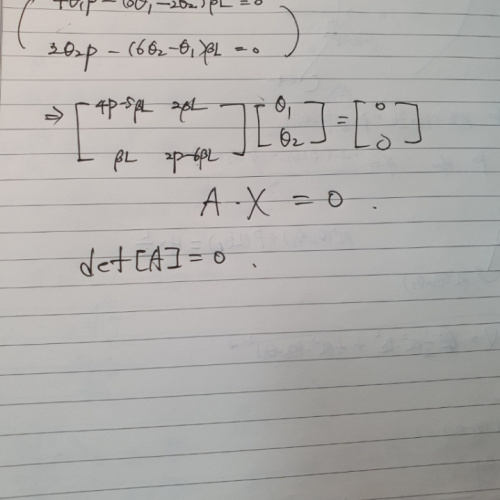 4θ₁p - (5θ₁-2θ₂)βL = 0
3θ₂p - (6θ₂-θ₁)βL = 0
⇒ [4p-5βL 2βL; βL 2p-6βL] [θ₁; θ₂] = [0; 0]
A·X = 0.
det[A] = 0.